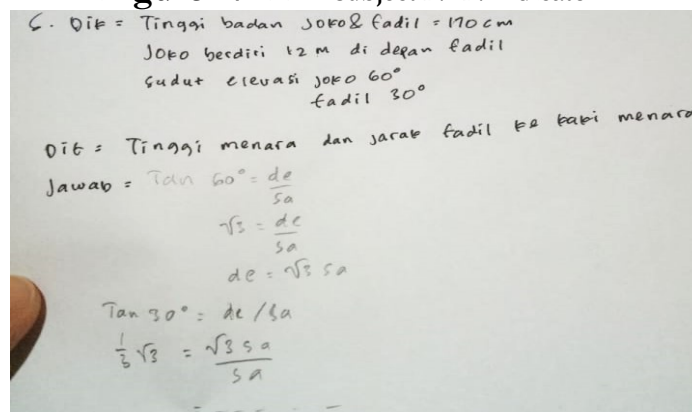 6. Dik = Tinggi badan Joko & fadil = 170 cm
Joko berdiri 12 m di depan fadil
Sudut elevasi Joko 60°
fadil 30°
Dit = Tinggi menara dan jarak fadil ke kaki menara
Jawab = Tan 60° = de/sa
√3 = de/sa
de = √3 sa
Tan 30° = de/sa
1/3 √3 = √3 sa/sa